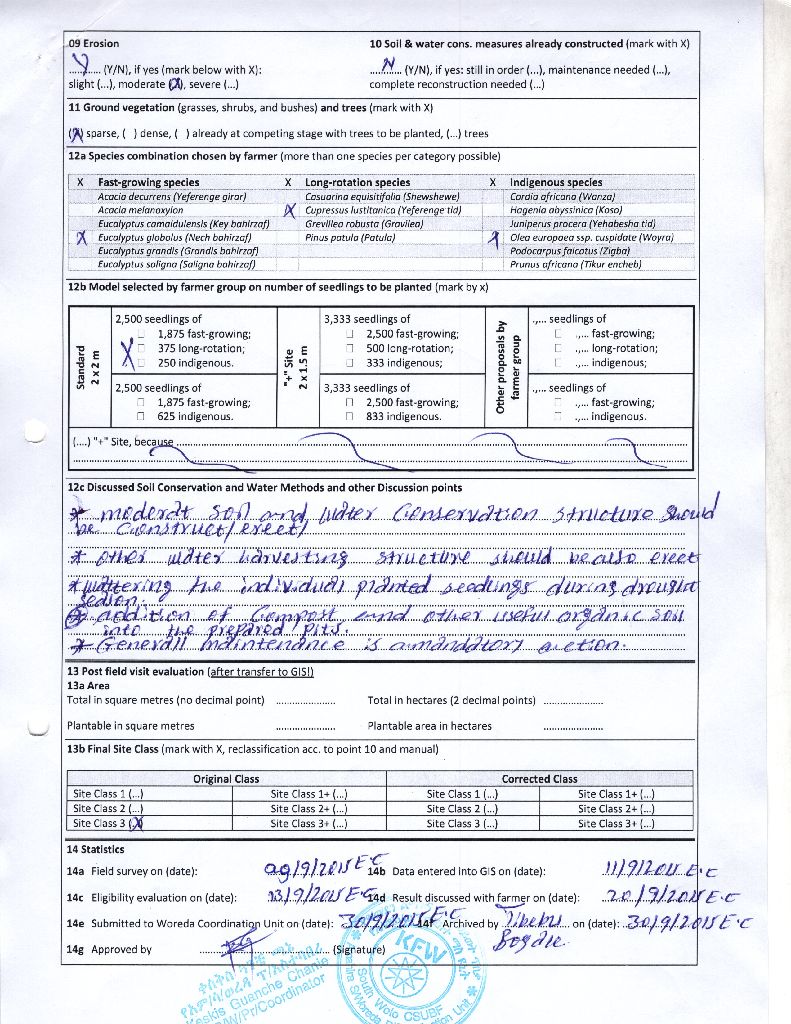 09 Erosion 10 Soil & water cons. measures already constructed (mark with X)
Y (Y/N), if yes (mark below with X): N (Y/N), if yes: still in order (...), maintenance needed (...),
slight (...), moderate (X), severe (...) complete reconstruction needed (...)
11 Ground vegetation (grasses, shrubs, and bushes) and trees (mark with X)
(X) sparse, ( ) dense, ( ) already at competing stage with trees to be planted, (...) trees
12a Species combination chosen by farmer (more than one species per category possible)
X Fast-growing species X Long-rotation species X Indigenous species
Acacia decurrens (Yeferenge girar) Casuarina equisitifolia (Shewshewe) Cordia africana (Wanza)
Acacia melanoxylon X Cupressus lustitanica (Yeferenge tid) Hagenia abyssinica (Koso)
Eucalyptus camaldulensis (Key bahirzaf) Grevillea robusta (Gravilea) Juniperus procera (Yehabesha tid)
X Eucalyptus globolus (Nech bahirzaf) Pinus patula (Patula) X Olea europaea ssp. cuspidate (Woyra)
Eucalyptus grandis (Grandis bahirzaf) Podocarpus falcatus (Zigba)
Eucalyptus saligna (Saligna bahirzaf) Prunus africana (Tikur encheb)
12b Model selected by farmer group on number of seedlings to be planted (mark by x)
Standard 2 x 2 m
2,500 seedlings of
1,875 fast-growing;
X 375 long-rotation;
250 indigenous.
2,500 seedlings of
1,875 fast-growing;
625 indigenous.
"+" Site 2 x 1.5 m
3,333 seedlings of
2,500 fast-growing;
500 long-rotation;
333 indigenous;
3,333 seedlings of
2,500 fast-growing;
833 indigenous.
Other proposals by farmer group
.,... seedlings of
.,... fast-growing;
.,... long-rotation;
.,... indigenous;
.,... seedlings of
.,... fast-growing;
.,... indigenous.
(....) "+" Site, because
12c Discussed Soil Conservation and Water Methods and other Discussion points
* moderat soil and water Conservation structure should
be construct/erect/
* other water harvesting structure should be also erect
* wattering the individual planted seedlings during drought
season.
* addition of Compost and other useful organic soil
into the prepared pits.
* Generall maintenance is a manddtory action.
13 Post field visit evaluation (after transfer to GIS!)
13a Area
Total in square metres (no decimal point) .................... Total in hectares (2 decimal points) ....................
Plantable in square metres .................... Plantable area in hectares ....................
13b Final Site Class (mark with X, reclassification acc. to point 10 and manual)
Original Class Corrected Class
Site Class 1 (...) Site Class 1+ (...) Site Class 1 (...) Site Class 1+ (...)
Site Class 2 (...) Site Class 2+ (...) Site Class 2 (...) Site Class 2+ (...)
Site Class 3 (X) Site Class 3+ (...) Site Class 3 (...) Site Class 3+ (...)
14 Statistics
14a Field survey on (date): 09/9/2015 E.C 14b Data entered into GIS on (date): 11/9/2015 E.C
14c Eligibility evaluation on (date): 13/9/2015 E.C 14d Result discussed with farmer on (date): 20/9/2015 E.C
14e Submitted to Woreda Coordination Unit on (date): 30/9/2015 E.C 14f Archived by on (date): 30/9/2015 E.C
14g Approved by (Signature)
Guanche Chanie
Coordinator
KFW
South Wolo CSUBF